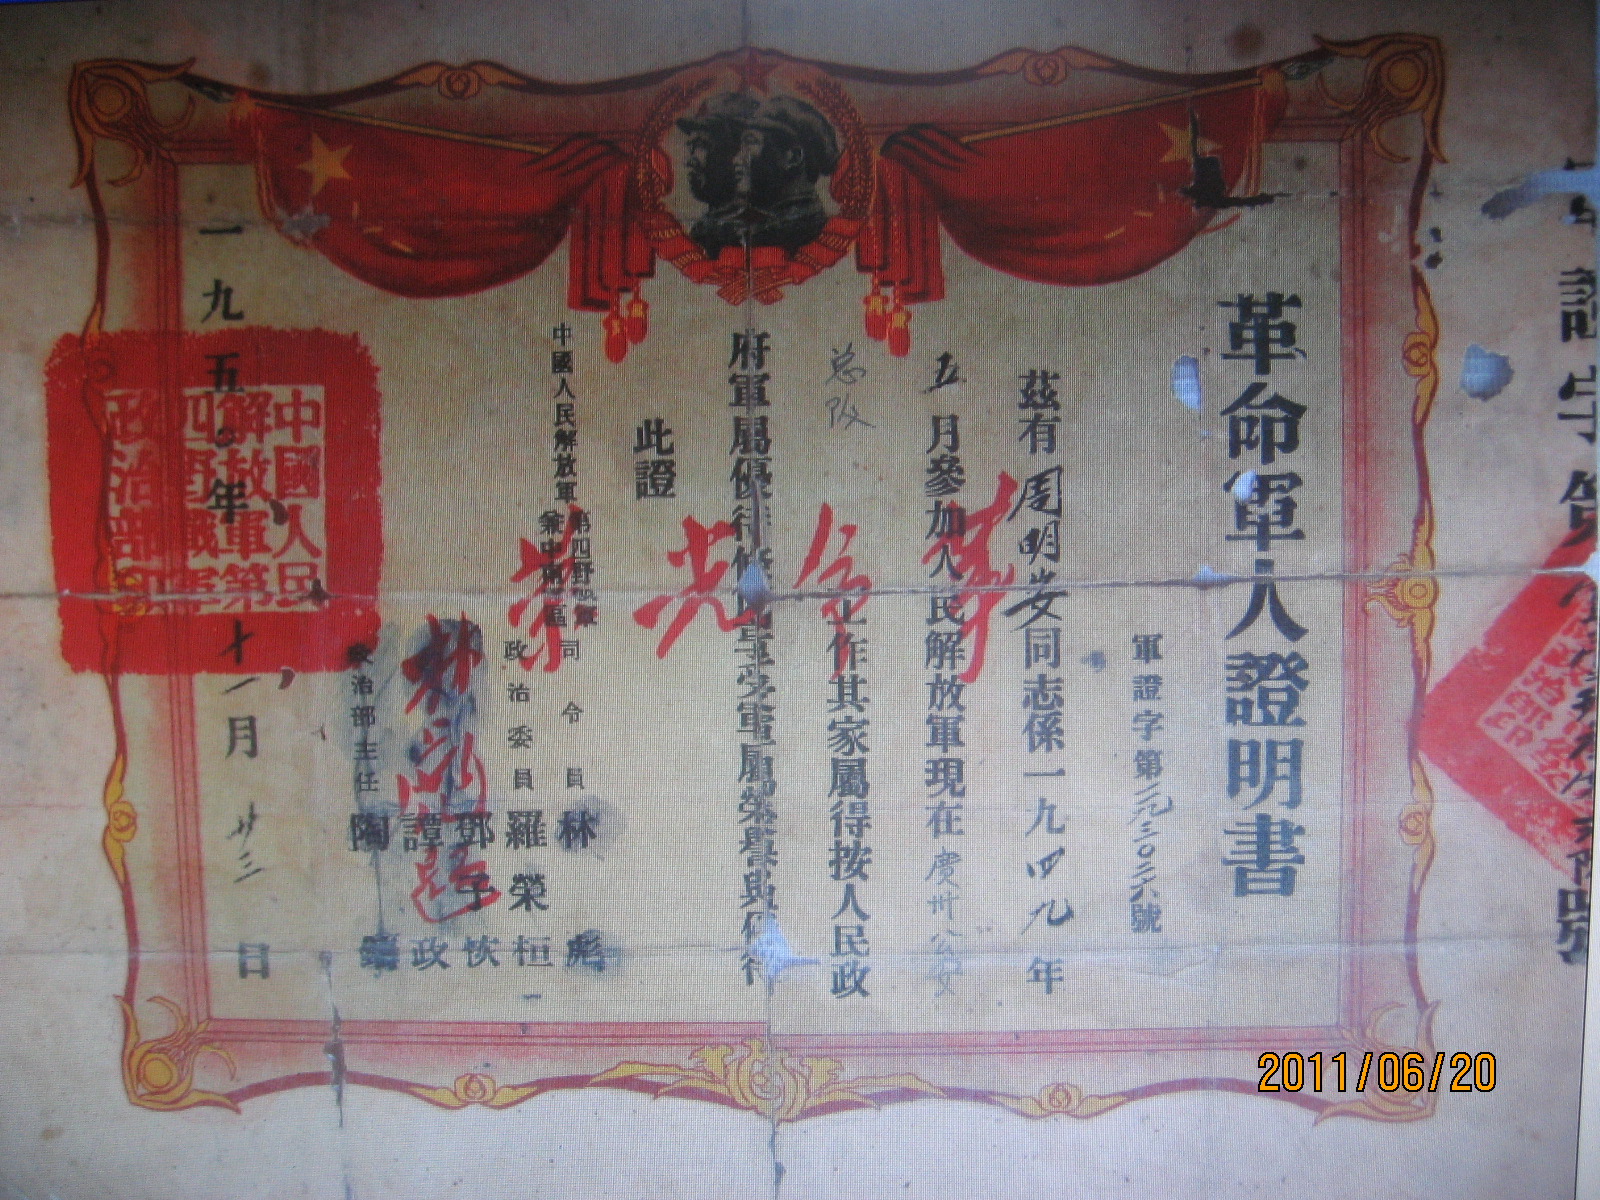 革命軍人證明書
軍證字第二九三〇二六號
茲有周明安同志係一九四九年
五月參加人民解放軍現在廣州公安
总队工作其家屬得按人民政
府軍屬優待條例享受軍屬榮譽與優待
此證
中國人民解放軍第四野戰軍
兼中南軍區
司令員林彪
政治委員羅榮桓
鄧子恢
譚政
政治部主任陶鑄
一九五〇年十一月廿三日
革命光榮
林彪
中國人民
解放軍第
四野戰軍
政治部印
2011/06/20